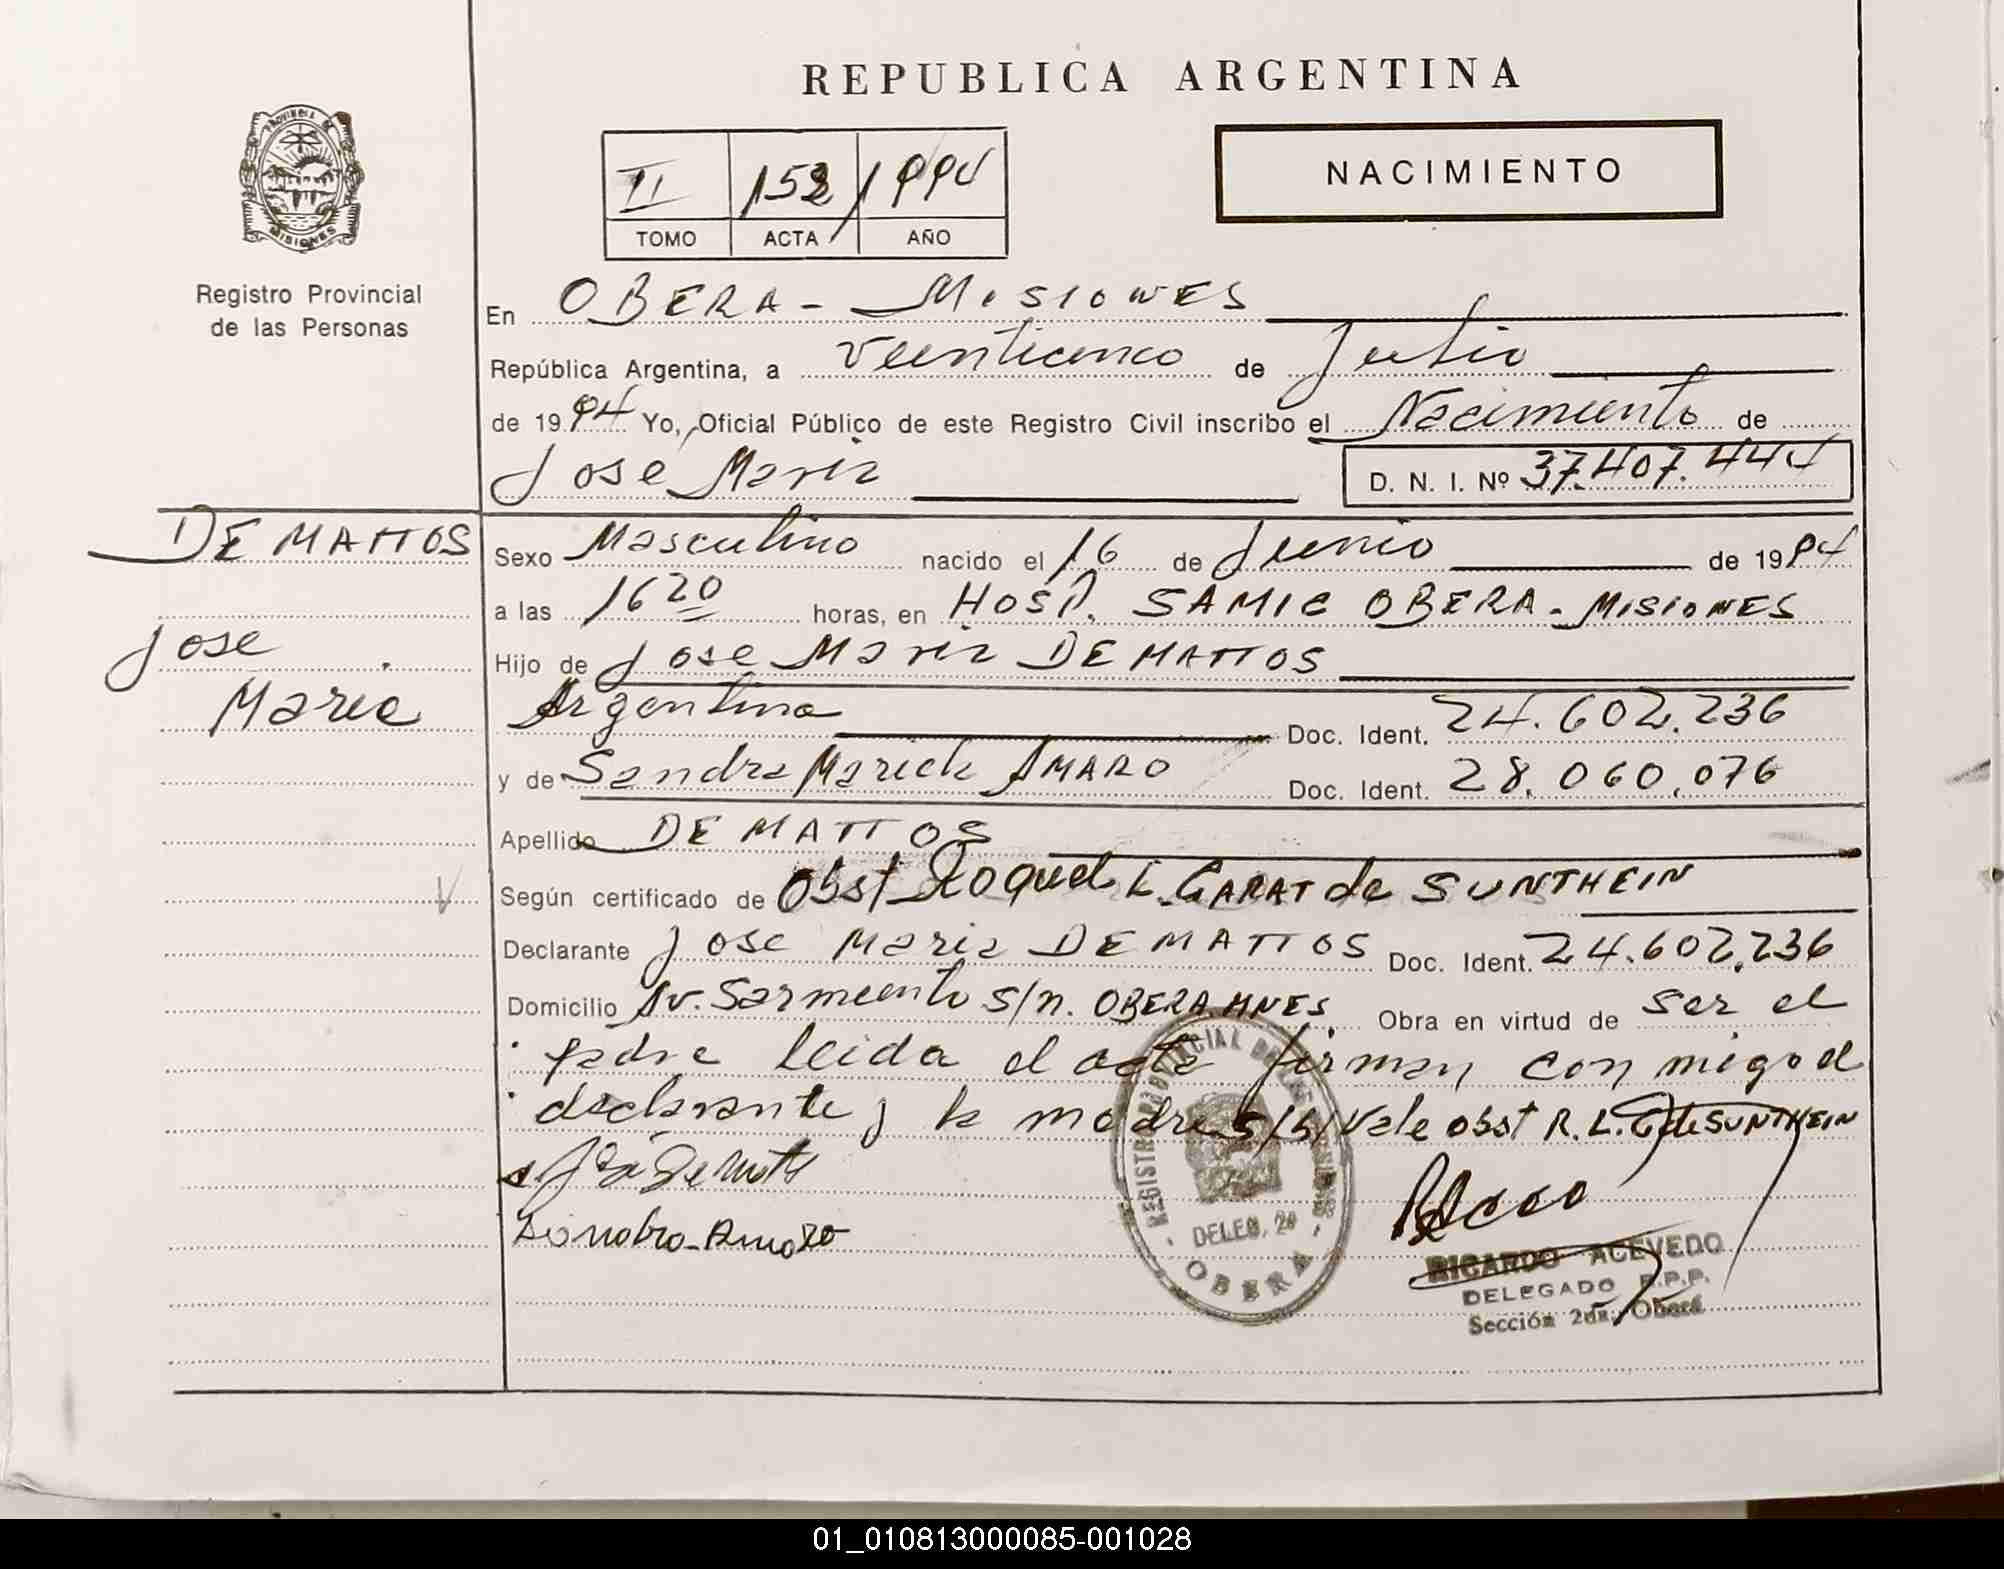 REPUBLICA ARGENTINA
PROVINCIA DE
MISIONES
Registro Provincial
de las Personas
II 152 1994
TOMO ACTA AÑO
NACIMIENTO
En OBERA - MISIONES
República Argentina, a Veinticinco de Julio
de 1994 Yo, Oficial Público de este Registro Civil inscribo el Nacimiento de
Jose Maria D. N. I. Nº 37.407.444
DE MATTOS
Jose
Maria
Sexo Masculino nacido el 16 de Junio de 1994
a las 1620 horas, en HOSP. SAMIC OBERA - MISIONES
Hijo de Jose Maria DE MATTOS
Argentina Doc. Ident. 24.602.236
y de Sandra Mariela AMARO Doc. Ident. 28.060.076
Apellido DE MATTOS
Según certificado de Obst Raquel L. GARAT de SUNTHEIN
Declarante Jose Maria DE MATTOS Doc. Ident. 24.602.236
Domicilio Av. Sarmiento s/n. OBERA MNES. Obra en virtud de ser el
padre leida el acta firman con migo el
declarante y la madre S/b/ Vale Obst R. L. G de SUNTHEIN
REGISTRO PROVINCIAL DE LAS PERSONAS
DELEG. 2ª
OBERA
RICARDO ACEVEDO
DELEGADO R.P.P.
Sección 2da. Oberá
01_010813000085-001028